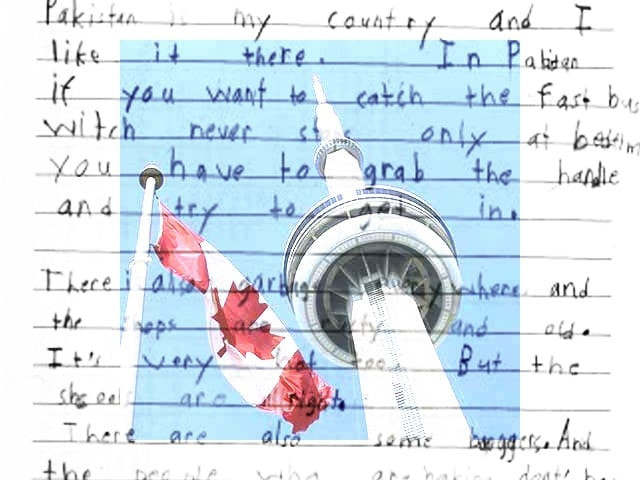 Pakistan is my country and I
like it there. In Pakistan
if you want to catch the fast bus
witch never stops only at
you have to grab the handle
and try to get in.
There is also garbage where and
the shops are and old.
It's very hot too. But the
are alright.
There are also some buggers. And
the people who are dont'